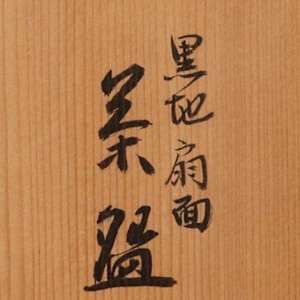 黒地扇面
茶盌